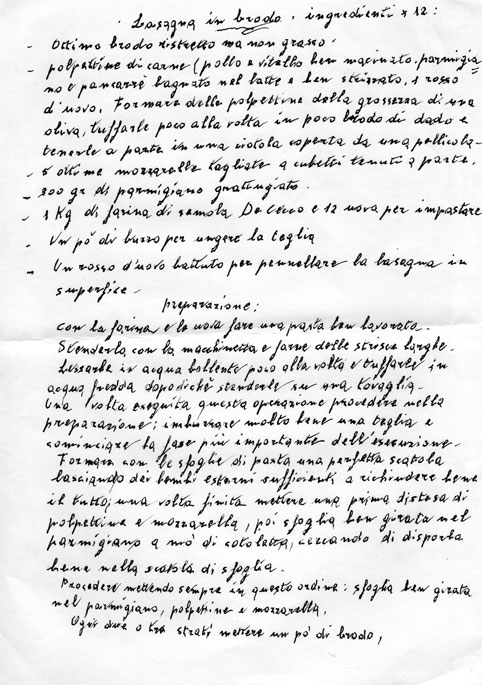 Lasagna in brodo. ingredienti x 12:
- Ottimo brodo ristretto ma non grasso.
- polpettine di carne (pollo e vitello ben macinato. parmigia=
no e pancarrè bagnato nel latte e ben strizzato, 1 rosso
d'uovo. Formare delle polpettine della grossezza di una
oliva, tuffarle poco alla volta in poco brodo di dado e
tenerle a parte in una ciotola coperta da una pellicola.
- 5 ottime mozzarelle tagliate a cubetti tenuti a parte.
- 300 gr di parmigiano grattugiato.
- 1 Kg di farina di semola De Cecco e 12 uova per impastare
- Un pò di burro per ungere la teglia
- Un rosso d'uovo battuto per pennellare la lasagna in
superfice -
preparazione:
Con la farina e le uova fare una pasta ben lavorata.
Stenderla con la macchinetta e farne delle strisce larghe.
Lessarle in acqua bollente poco alla volta e tuffarle in
acqua fredda dopodichè stenderle su una tovaglia.
Una volta eseguita questa operazione procedere nella
preparazione: imburrare molto bene una teglia e
cominciare la fase più importante dell'esecuzione.
Formare con le sfoglie di pasta una perfetta scatola
lasciando dei lembi esterni sufficienti a richiudere bene
il tutto; una volta finita mettere una prima distesa di
polpettine e mozzarella, poi sfoglia ben girata nel
parmigiano a mò di cotoletta, cercando di disporla
bene nella scatola di sfoglia.
Procedere mettendo sempre in questo ordine: sfoglia ben girata
nel parmigiano, polpettine e mozzarella.
Ogni due o tre strati mettere un pò di brodo,